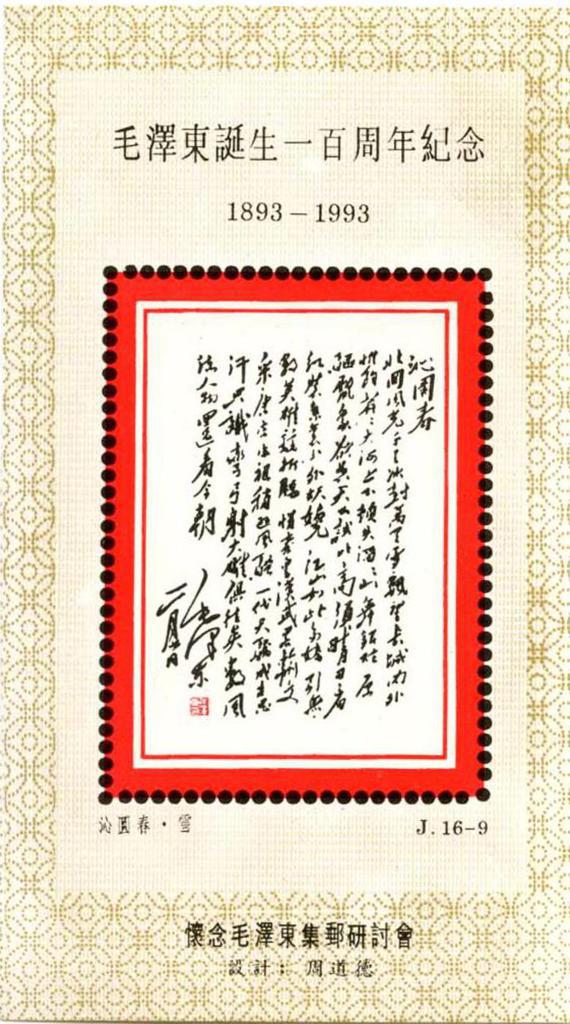 毛澤東誕生一百周年紀念
1893–1993
沁園春
北國風光千里冰封萬里雪飄望長城內外
惟餘莽莽大河上下頓失滔滔山舞銀蛇原
驅臘象欲與天公試比高須晴日看
紅裝素裹分外妖嬈 江山如此多嬌引無
數英雄競折腰 惜秦皇漢武略輸文
采唐宗宋祖稍遜風騷一代天驕成吉思
汗只識彎弓射大雕俱往矣數風
流人物還看今朝
毛澤東
沁園春・雪
J.16–9
懷念毛澤東集郵研討會
設計：周道德